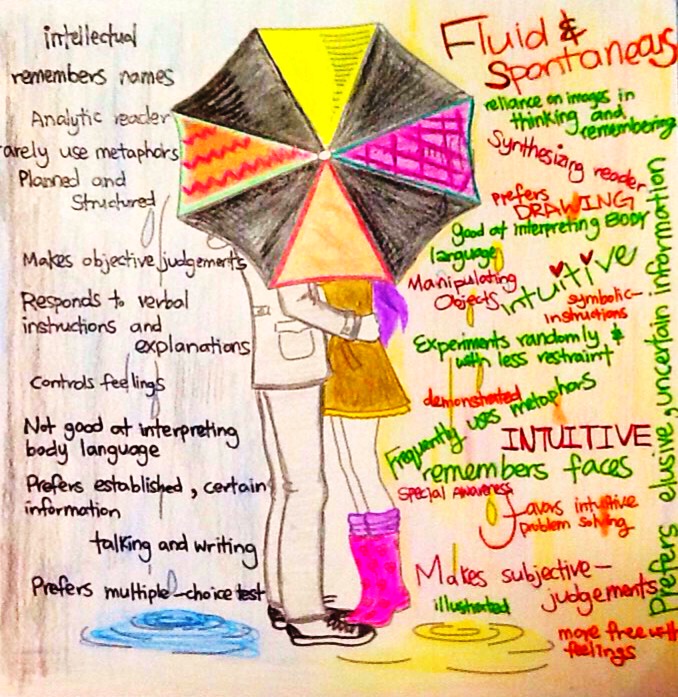 intellectual
remembers names
Analytic reader
rarely use metaphors
Planned and
Structured
Makes objective judgements
Responds to verbal
instructions and
explanations
controls feelings
Not good at interpreting
body language
Prefers established, certain
information
talking and writing
Prefers multiple-choice test
Fluid &
Spontaneous
reliance on images in
thinking and
remembering
Synthesizing reader
prefers
DRAWING
good at interpreting BODY
language
Manipulating
Objects
intuitive
symbolic-
instructions
Experiments randomly &
with less restraint
demonstrated
Frequently uses metaphors
INTUITIVE
remembers faces
Special Awareness
Favors intuitive
problem solving
Makes subjective-
judgements
illustrated
more free with
feelings
Prefers elusive, uncertain information